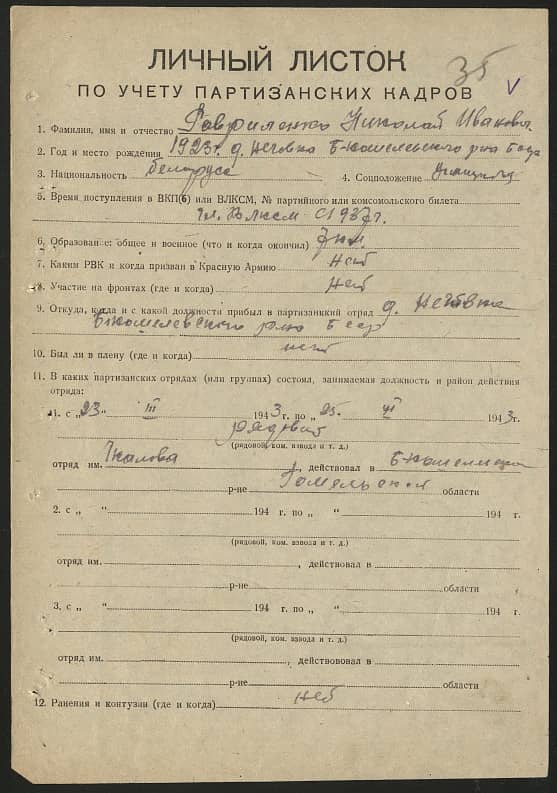 35
V
ЛИЧНЫЙ ЛИСТОК
ПО УЧЕТУ ПАРТИЗАНСКИХ КАДРОВ
1. Фамилия, имя и отчество Гавриленко Николай Иванович
2. Год и место рождения 1923 г. д. Неговка Б-Кошелевского р-на БССР
3. Национальность белорус 4. Соцположение учащийся
5. Время поступления в ВКП(б) или ВЛКСМ, № партийного или комсомольского билета
чл. ВЛКСМ с 1937 г.
6. Образование: общее и военное (что и когда окончил) 7 кл.
7. Каким РВК и когда призван в Красную Армию Нет
8. Участие на фронтах (где и когда) Нет
9. Откуда, когда и с какой должности прибыл в партизанский отряд д. Неговка
Б-Кошелевского р-на БССР
10. Был ли в плену (где и когда) нет
11. В каких партизанских отрядах (или группах) состоял, занимаемая должность и район действия
отряда:
1. с „23“ III 1943 г. по „25“ VI 1943 г.
рядовой
(рядовой, ком. взвода и т. д.)
отряд им. Чкалова, действовал в Б-Кошелевском
р-не Гомельской области
2. с „ “ 194 г. по „ “ 194 г.
(рядовой, ком. взвода и т. д.)
отряд им. , действовал в
р-не области
3. с „ “ 194 г. по „ “ 194 г.
(рядовой, ком. взвода и т. д.)
отряд им. , действовал в
р-не области
12. Ранения и контузии (где и когда) нет